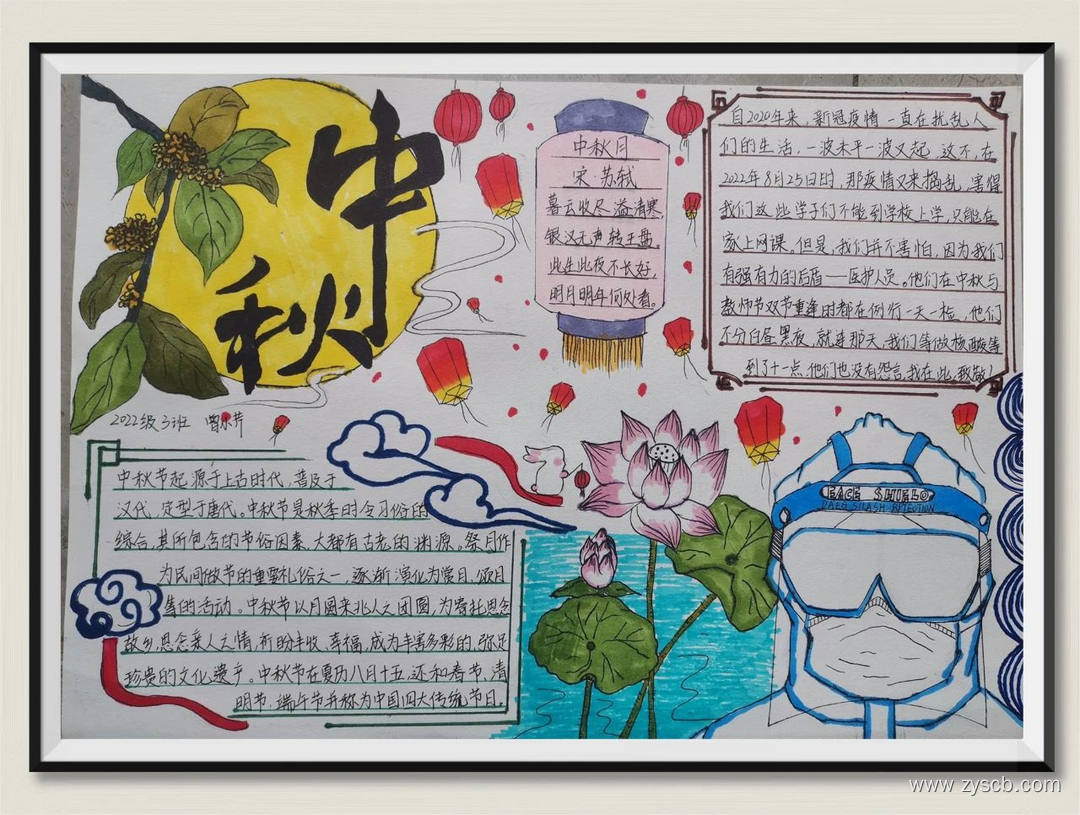 中秋
中秋月
宋·苏轼
暮云收尽溢清寒,
银汉无声转玉盘。
此生此夜不长好,
明月明年何处看。
自2020年来,新冠疫情一直在扰乱人
们的生活,一波未平一波又起,这不,在
2022年8月25日时,那疫情又来捣乱,害得
我们这些学子们不能到学校上学,只能在
家上网课,但是,我们并不害怕,因为我们
有强有力的后盾——医护人员。他们在中秋与
教师节双节重逢时都在例行一天一检,他们
不分白昼黑夜,就连那天,我们等做核酸等
到了十一点,他们也没有怨言,我在此,致敬!
2022级3班
中秋节起源于上古时代,普及于
汉代,定型于唐代。中秋节是秋季时令习俗的
综合,其所包含的节俗因素,大都有古老的渊源。祭月作
为民间做节的重要礼俗之一,逐渐演化为赏月,颂月
等的活动。中秋节以月圆来兆人之团圆,为寄托思念
故乡,思念亲人之情,祈盼丰收、幸福,成为丰富多彩的,弥足
珍贵的文化遗产。中秋节在夏历八月十五,还和春节,清
明节,端午节并称为中国四大传统节日。
FACE SHIELD
www.zyscb.com